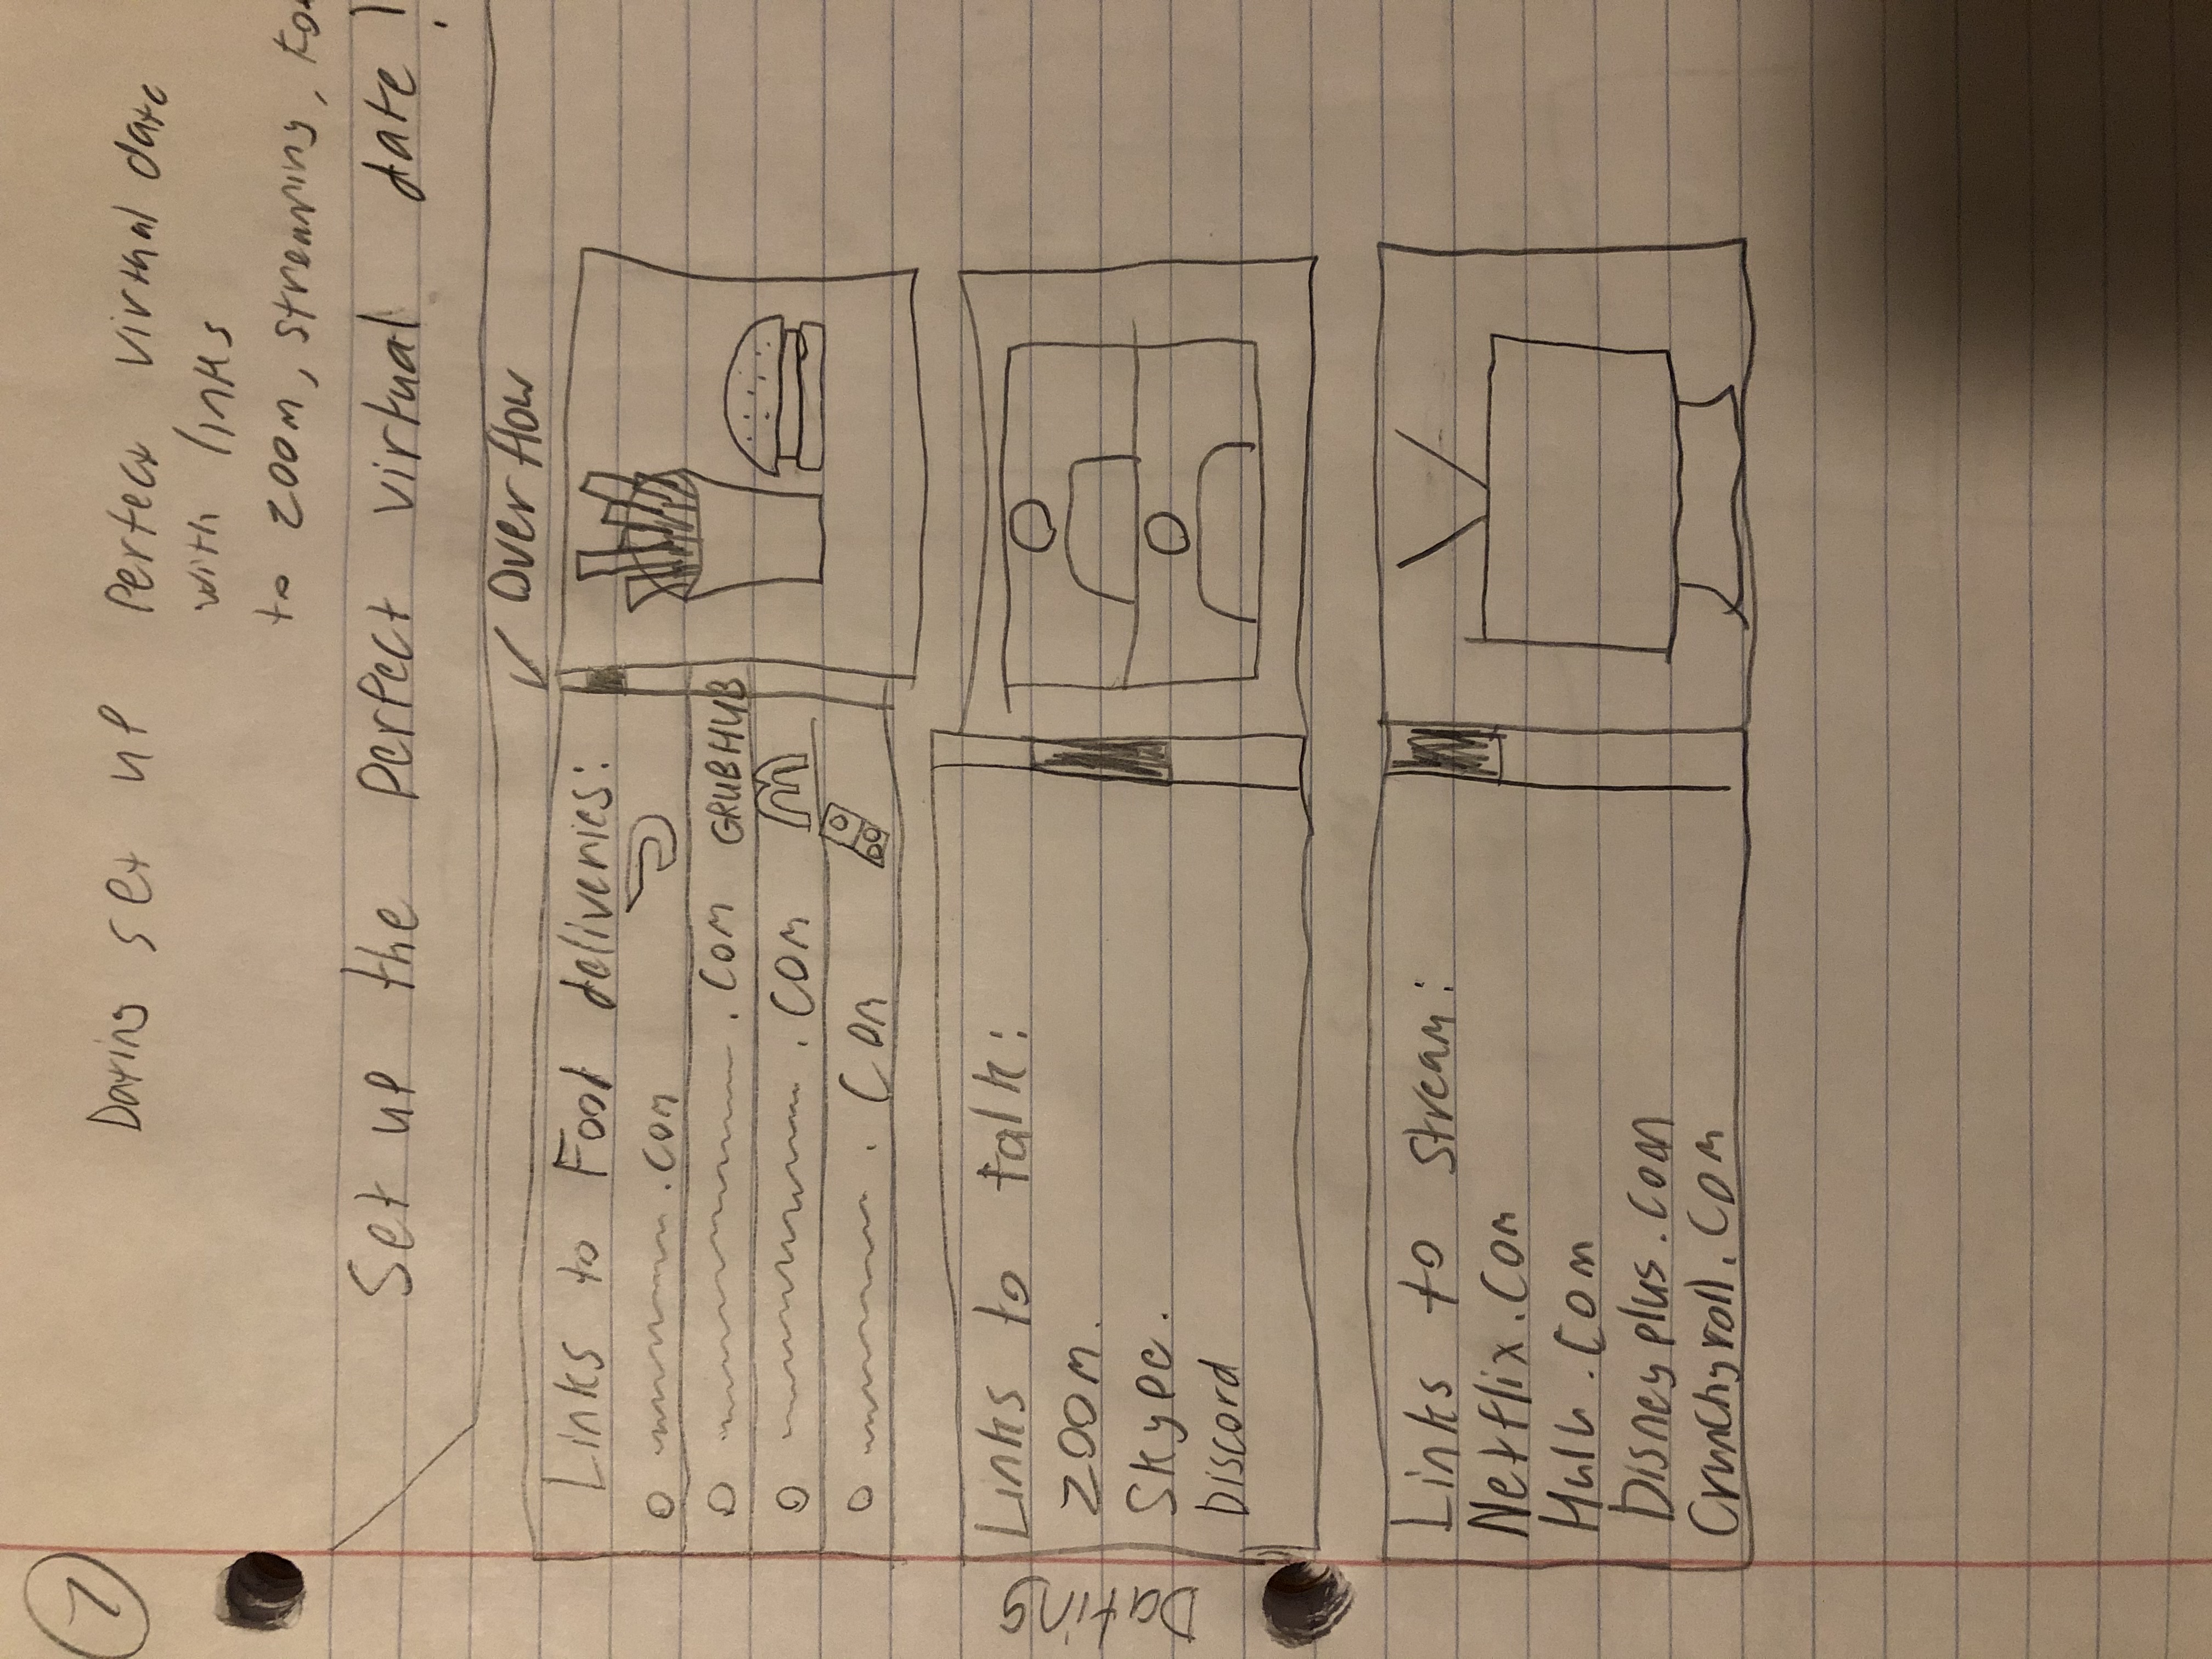 1
Dating set up perfect virtual date
with links
to zoom, streaming,
Set up the perfect virtual date!
Overflow
Links to Food deliveries:
.com
.com GRUBHUB
.com M
.com
Dating
Links to talk:
Zoom.
Skype.
Discord
Links to stream:
Netflix.com
Hulu.com
Disneyplus.com
Crunchyroll.com